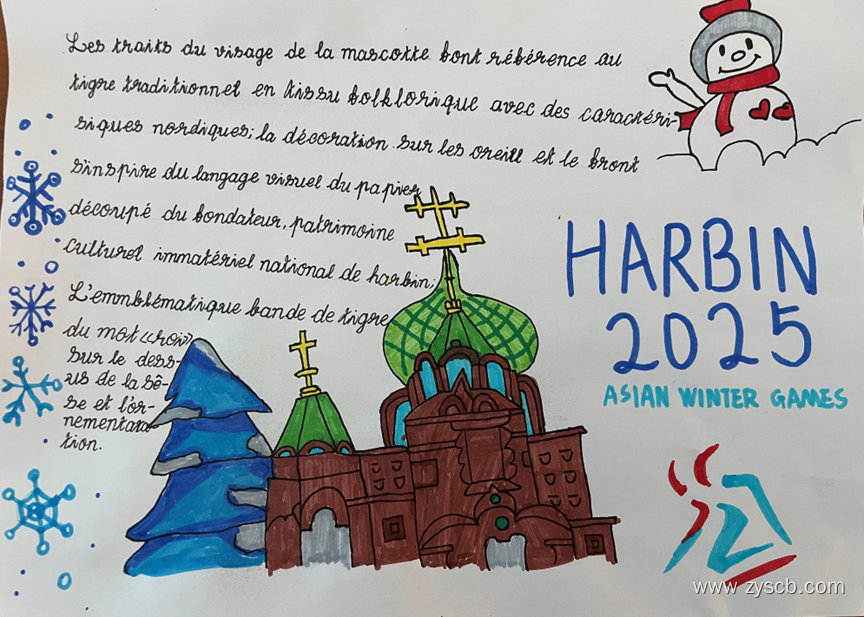 Les traits du visage de la mascotte font référence au
tigre traditionnel en tissu folklorique avec des caractéri-
siques nordiques; la décoration sur les oreill et le front
s'inspire du langage visuel du papier
découpé du fondateur, patrimoine
culturel immatériel national de harbin,
L'emmblématique bande de tigre
du mot «roi»
sur le dess-
us de la tê-
te et l'or-
nementata
tion.
HARBIN
2025
ASIAN WINTER GAMES
www.zyscb.com